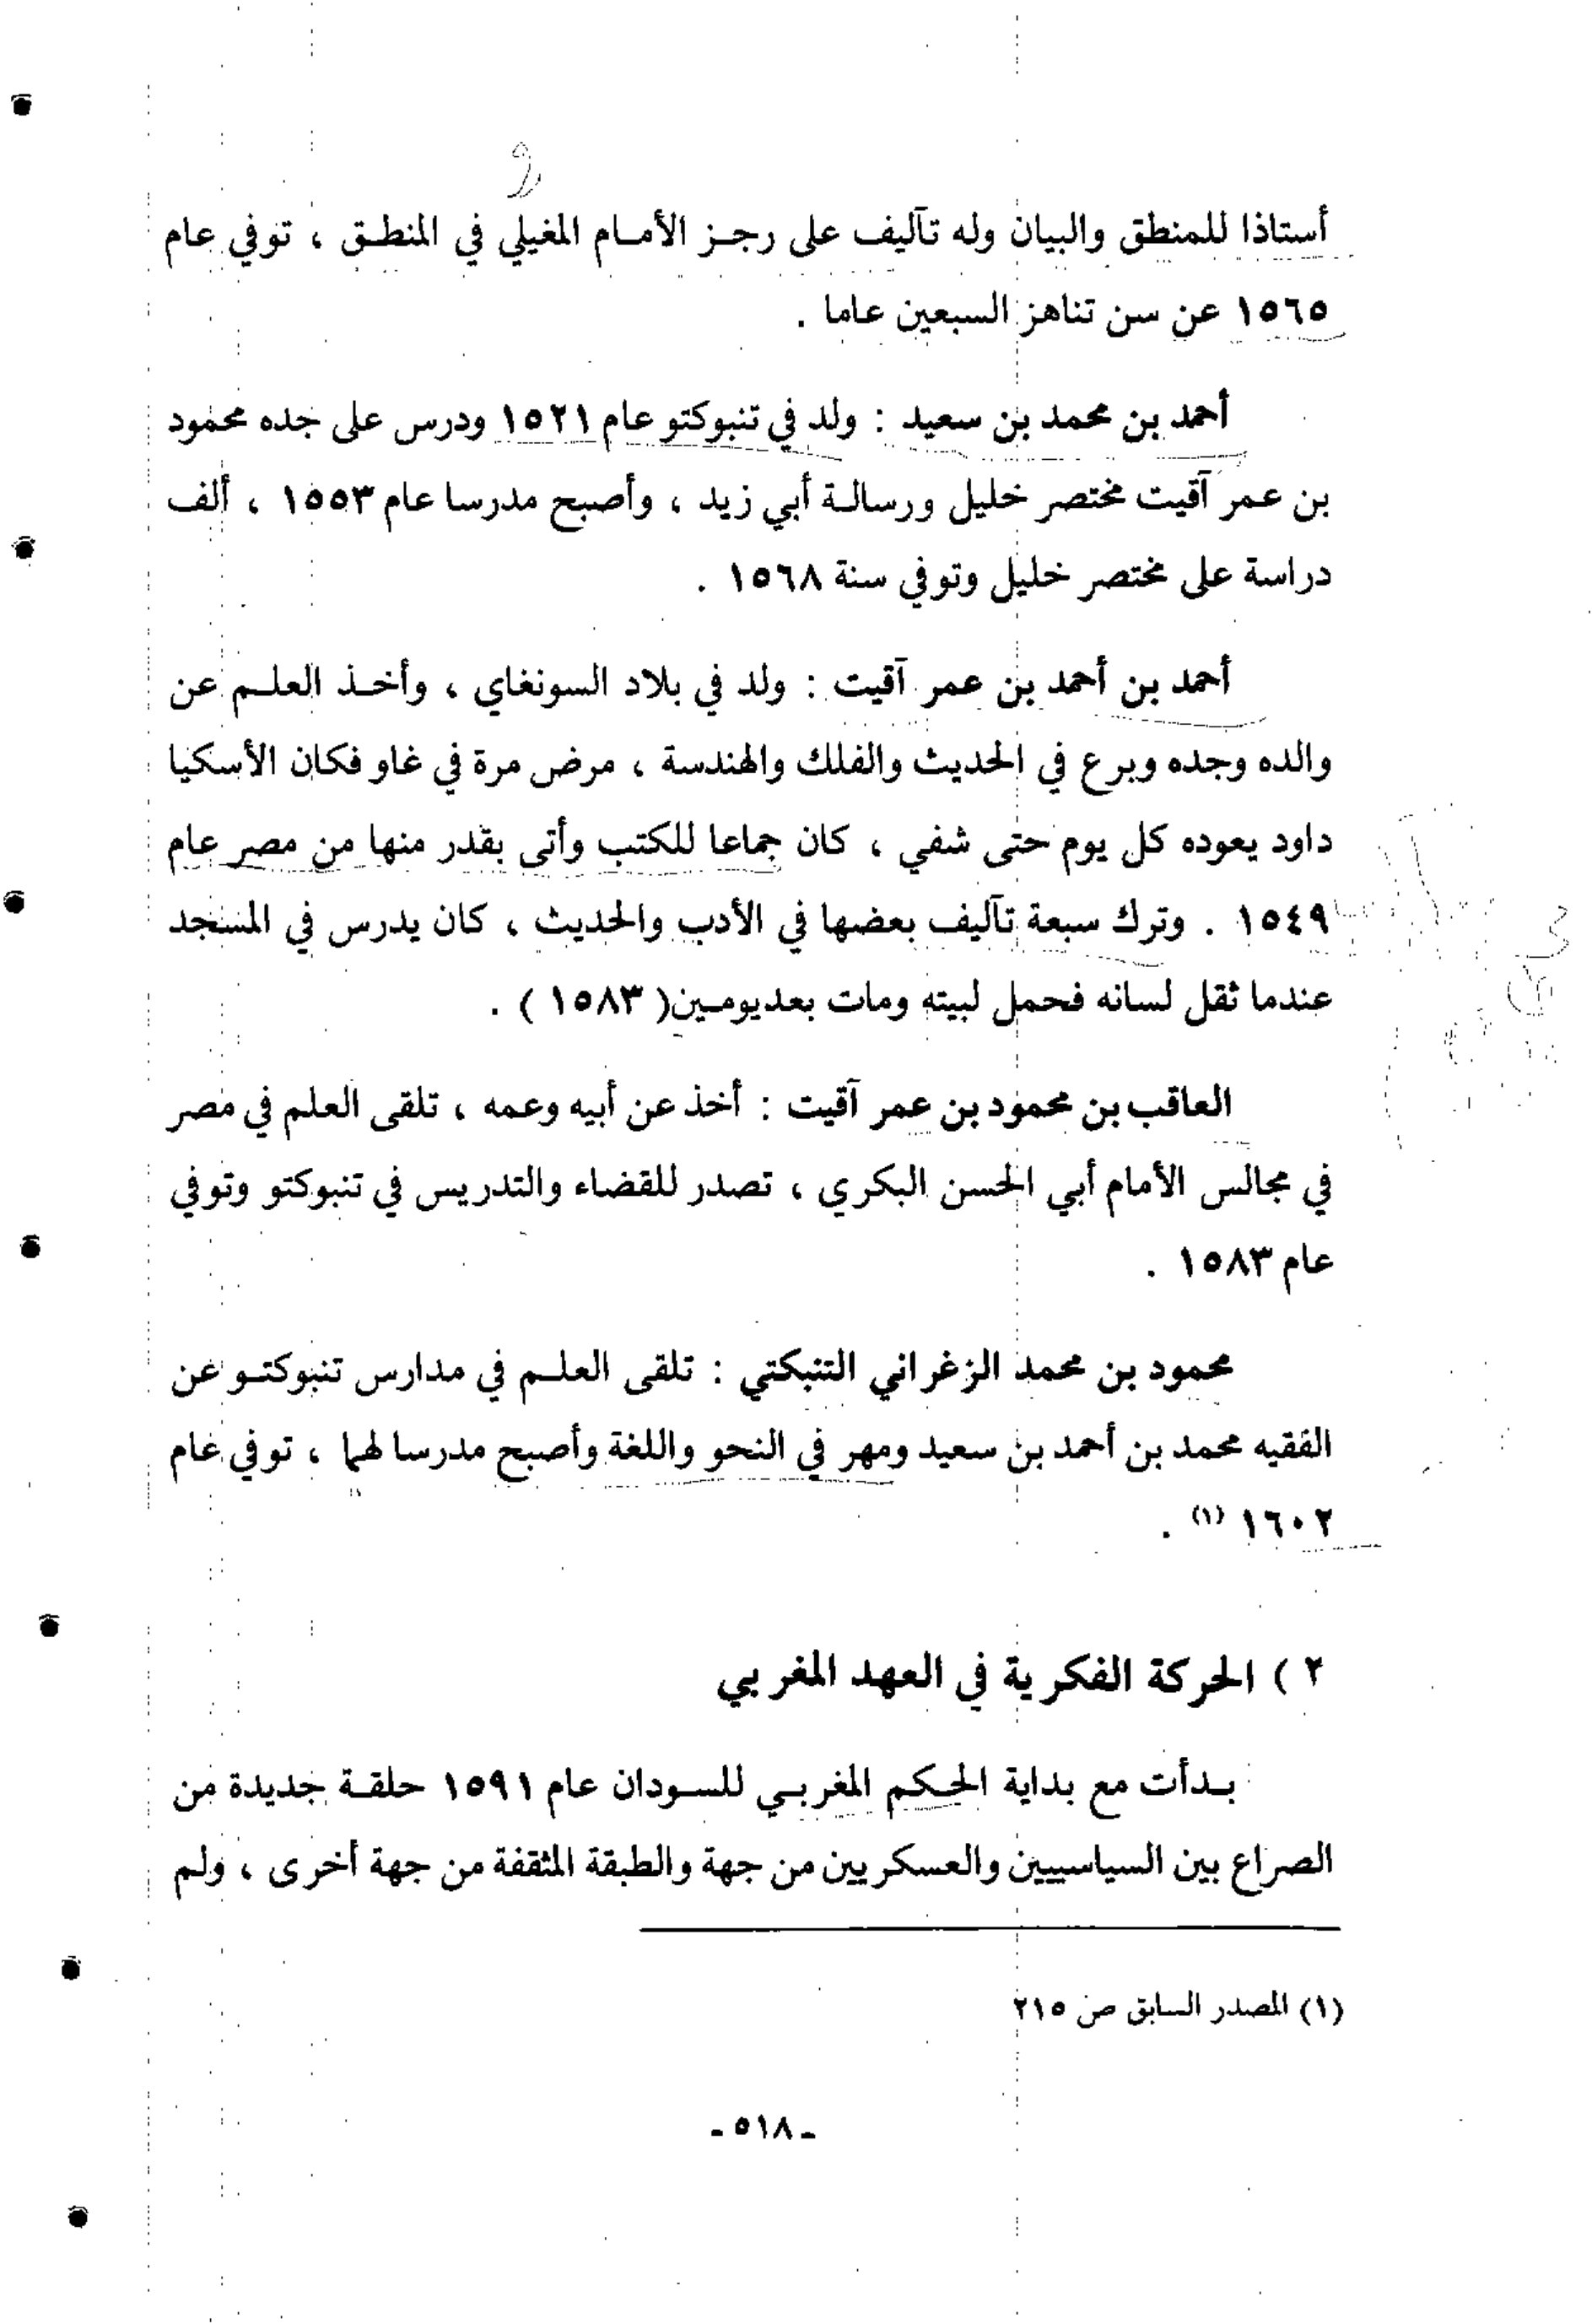 أستاذا للمنطق والبيان وله تآليف على رجز الأمام المغيلي في المنطق ، توفي عام
١٥٦٥ عن سن تناهز السبعين عاما .
أحمد بن محمد بن سعيد : ولد في تنبوكتو عام ١٥٢١ ودرس على جده محمود
بن عمر آقيت مختصر خليل ورسالة أبي زيد ، وأصبح مدرسا عام ١٥٥٣ ، ألف
دراسة على مختصر خليل وتوفي سنة ١٥٦٨ .
أحمد بن أحمد بن عمر آقيت : ولد في بلاد السونغاي ، وأخذ العلم عن
والده وجده وبرع في الحديث والفلك والهندسة ، مرض مرة في غاو فكان الأسكيا
داود يعوده كل يوم حتى شفي ، كان جماعا للكتب وأتى بقدر منها من مصر عام
١٥٤٩ . وترك سبعة تآليف بعضها في الأدب والحديث ، كان يدرس في المسجد
عندما ثقل لسانه فحمل لبيته ومات بعد يومين ( ١٥٨٣ ) .
العاقب بن محمود بن عمر آقيت : أخذ عن أبيه وعمه ، تلقى العلم في مصر
في مجالس الأمام أبي الحسن البكري ، تصدر للقضاء والتدريس في تنبوكتو وتوفي
عام ١٥٨٣ .
محمود بن محمد الزغراني التنبكتي : تلقى العلم في مدارس تنبوكتو عن
الفقيه محمد بن أحمد بن سعيد ومهر في النحو واللغة وأصبح مدرسا لهما ، توفي عام
١٦٠٢ (١) .
٢ ) الحركة الفكرية في العهد المغربي
بدأت مع بداية الحكم المغربي للسودان عام ١٥٩١ حلقة جديدة من
الصراع بين السياسيين والعسكريين من جهة والطبقة المثقفة من جهة أخرى ، ولم
(١) المصدر السابق ص ٢١٥
- ٥١٨ -